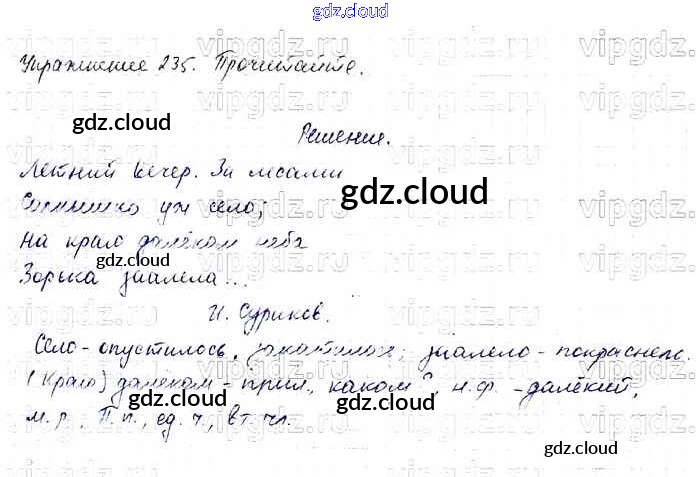 gdz.cloud
Упражнение 235. Прочитайте.
gdz.cloud
Решение.
Летний вечер. За лесами
gdz.cloud
Солнышко уж село;
На краю далёком неба
Зорька заалела...
gdz.cloud gdz.cloud
И. Суриков.
Село - опустилось, закатилось; заалело - покраснело.
(Краю) далёком - прил., каком?, н.ф. - далёкий,
gdz.cloud gdz.cloud
м.р., П.п., ед.ч., вт. чл.
gdz.cloud